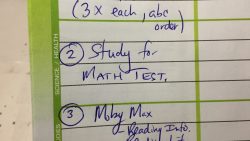 (3 x each, abc
order)
② Study for
MATH TEST.
③ Moby Max
Reading Info.